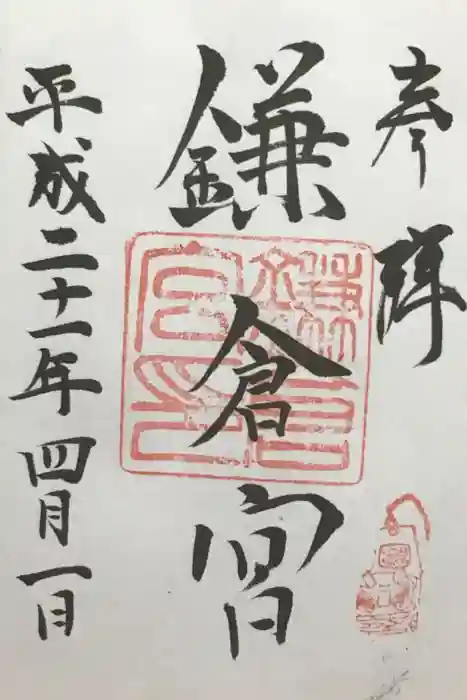 参拝
鎌倉宮
平成二十一年四月一日